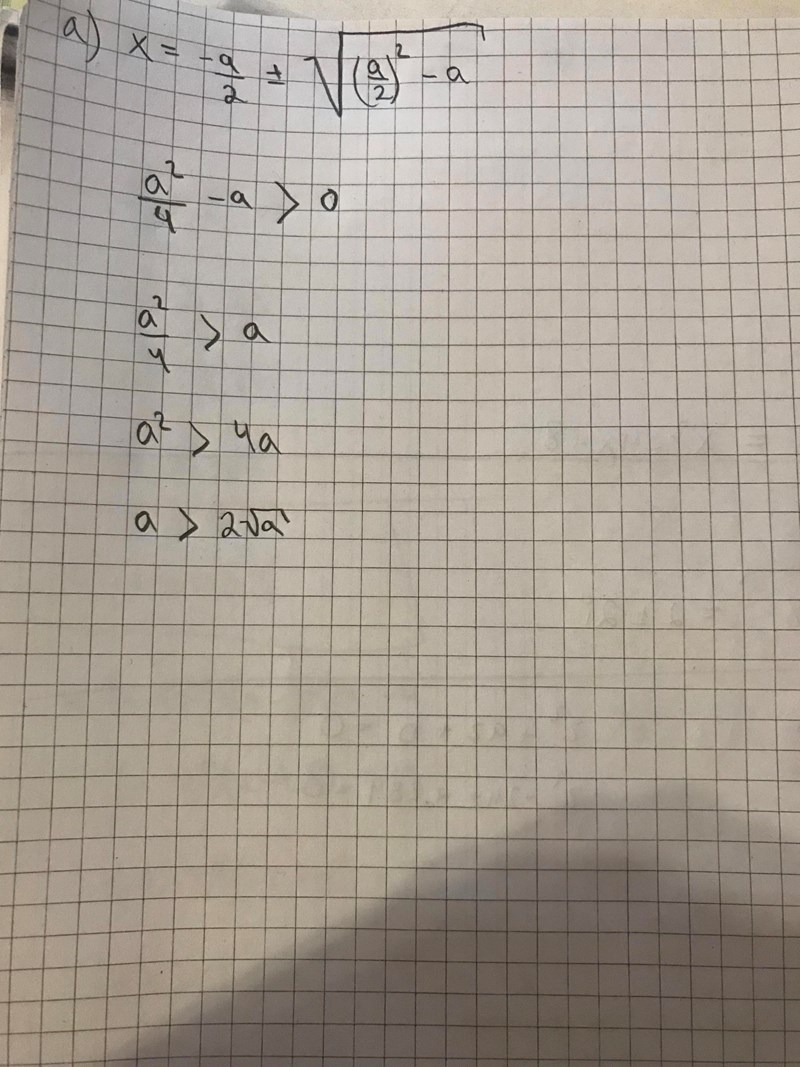 a) x = -a/2 ± √((a/2)² - a)
a²/4 - a > 0
a²/4 > a
a² > 4a
a > 2√a